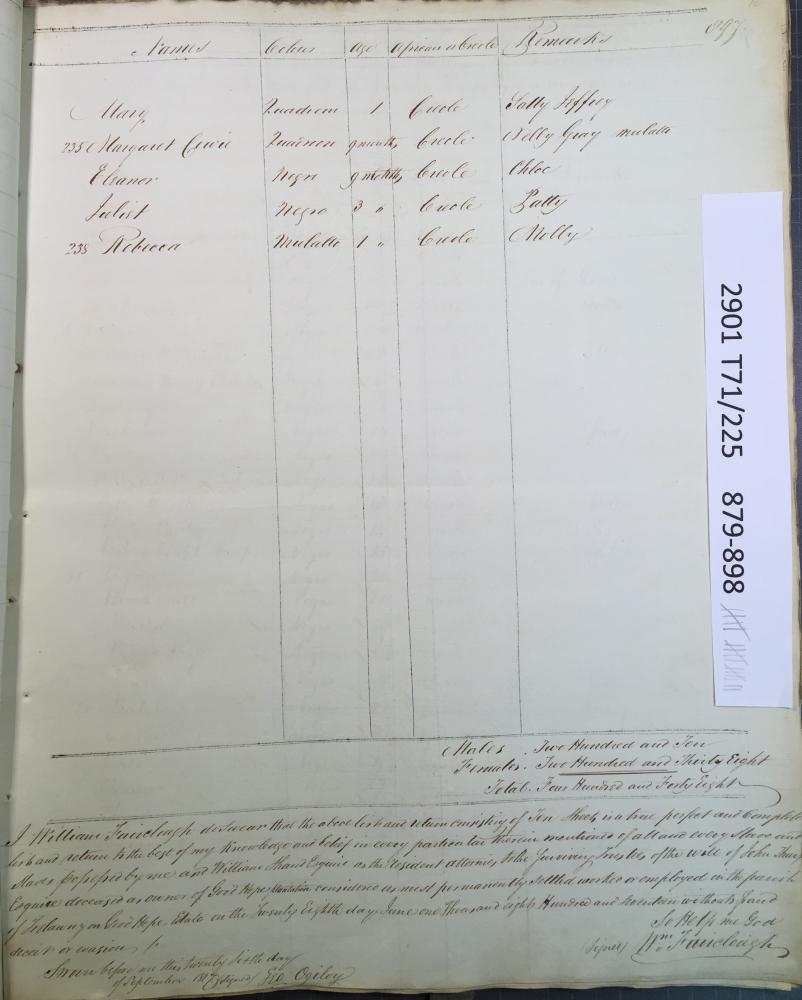 897.
Names Colour Age African or Creole Remarks
Mary Quadroon 1 Creole Sally Jeffrey
235 Margaret Quadroon 9 months Creole Nelly Gray mulatto
Eleanor Negro 9 months Creole Chloe
Juliet Negro 3 " Creole Patty
238 Rebecca Mulatto 1 " Creole Molly
2901 T71/225 879-898
Males . Two Hundred and Ten
Females . Two Hundred and Thirty Eight
Total . Four Hundred and Forty Eight
I William Fairclough do Swear that the above list and return consisting of Ten Sheets is a true perfect and Complete
list and return to the best of my Knowledge and belief in every particular therein mentioned of all and every Slave and
Slaves possessed by me and William Shand Esquire as the Resident attornies to the Surviving Trustees of the will of John Tharp
Esquire deceased as owner of Good Hope Plantation considered as most permanently settled worked or employed in the parish
of Trelawny on Good Hope Estate on the Twenty Eighth day June one Thousand eight Hundred and Seventeen without fraud
deceit or evasion So Help me God
Sworn before me this twenty Sixth day (signed) Wm. Fairclough
of September 1817 (signed) Geo. Ogilvy